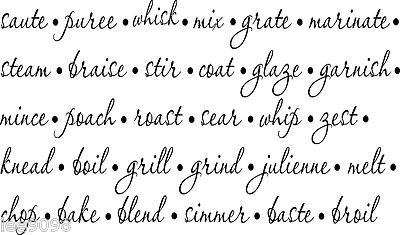 saute • puree • whisk • mix • grate • marinate •
steam • braise • stir • coat • glaze • garnish •
mince • poach • roast • sear • whip • zest •
knead • boil • grill • grind • julienne • melt •
chop • bake • blend • simmer • baste • broil
lee9098